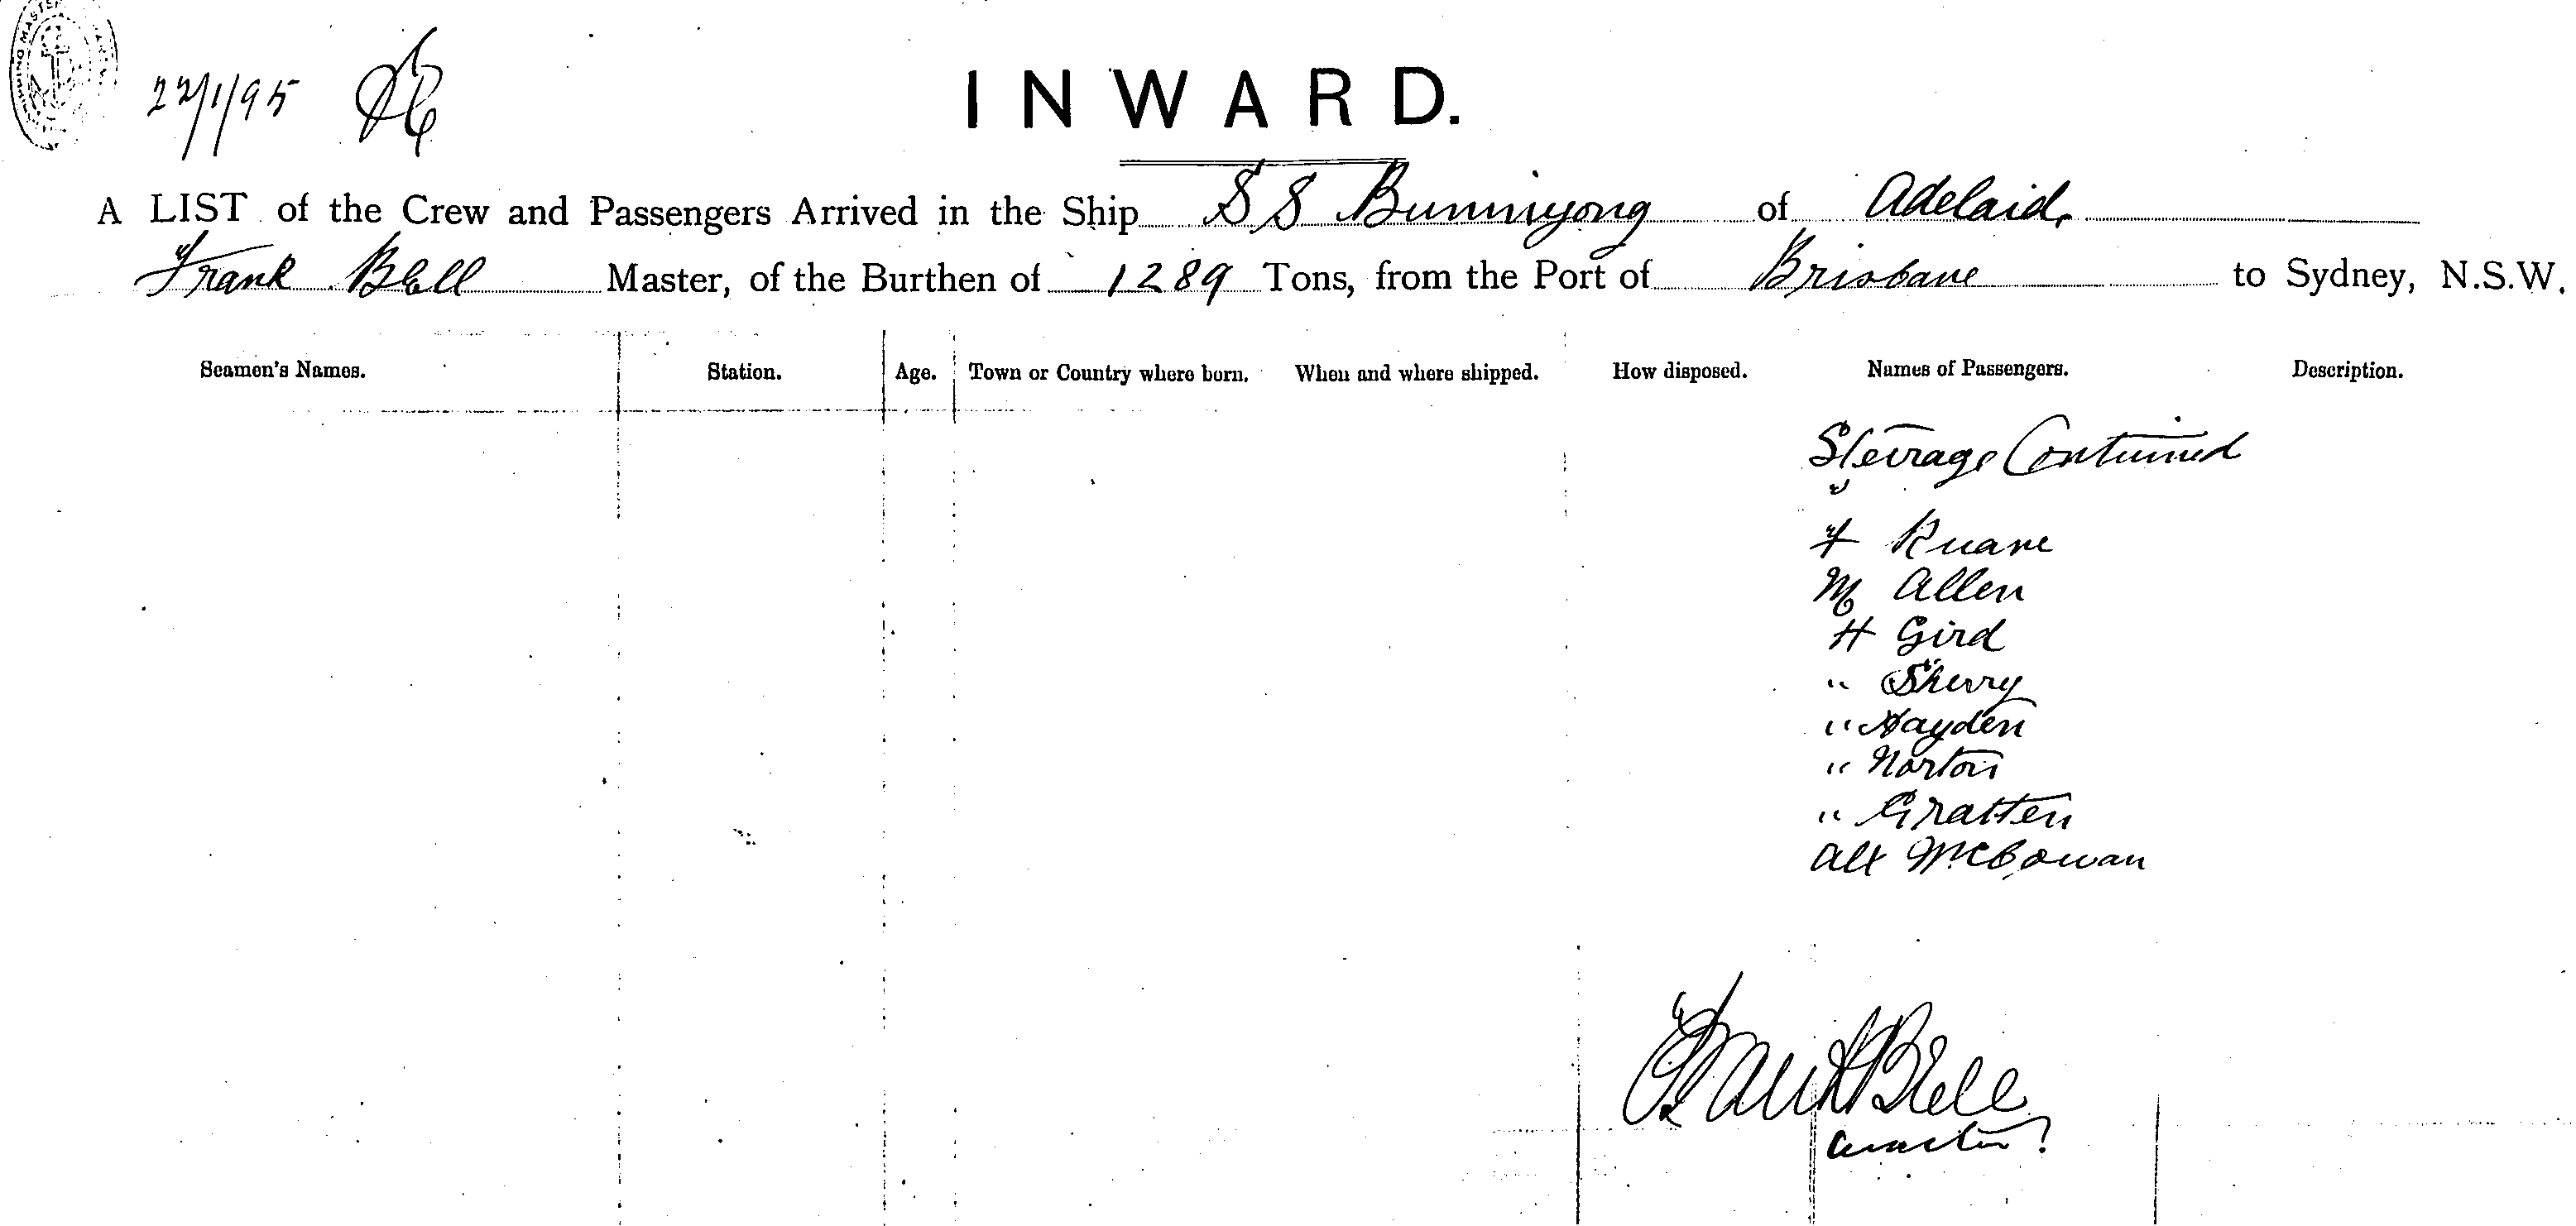 22/1/95
INWARD.
A LIST of the Crew and Passengers Arrived in the Ship S S Buninyong of Adelaide
Frank Bell Master, of the Burthen of 1289 Tons, from the Port of Brisbane to Sydney, N.S.W.
Seamen's Names. Station. Age. Town or Country where born. When and where shipped. How disposed. Names of Passengers. Description.
Steirage Continued
F Ruane
M Allen
H Gird
" Sherry
" Hayden
" Norton
" Gratten
Alx McCowan
Frank Bell
Master